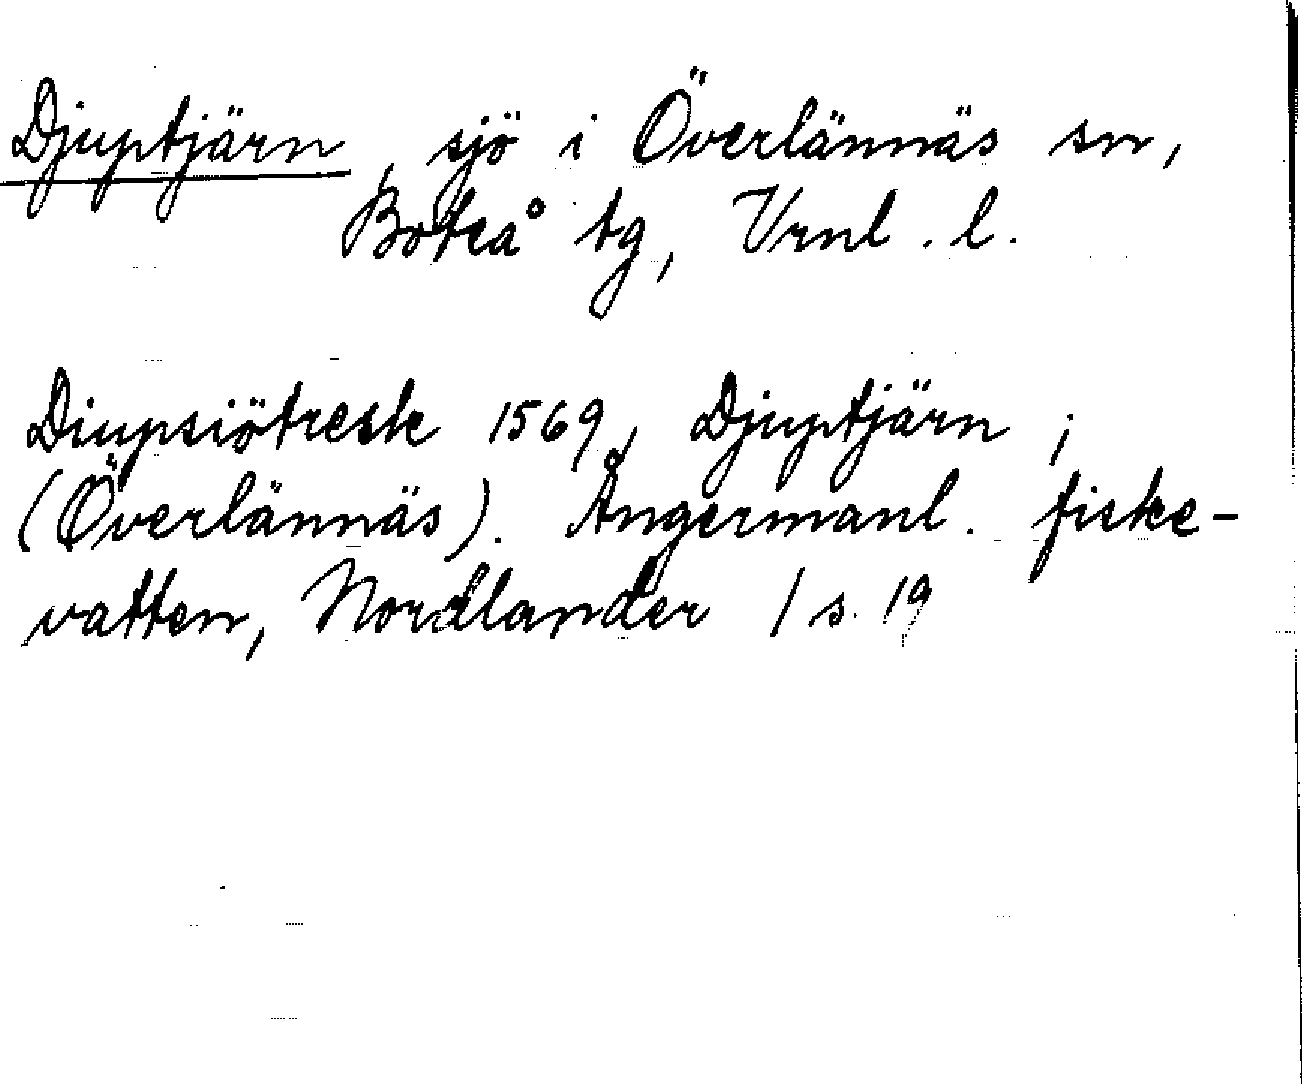 Djuptjärn, sjö i Överlännäs sn,
Boteå tg, Vrnl. l.
Diupsiötresk 1569, Djuptjärn i
(Överlännäs). Ångermanl. fiske-
vatten, Nordlander 1 s. 19